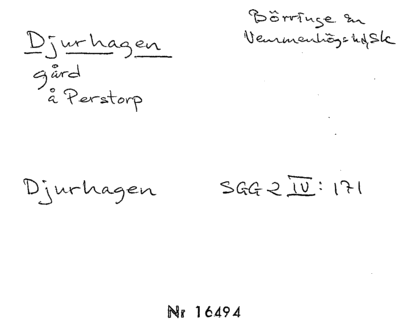 Djurhagen
gård
å Perstorp
Börringe sn
Vemmenhögs hd, Sk
Djurhagen
SGG 2 IV: 171
Nr 16494